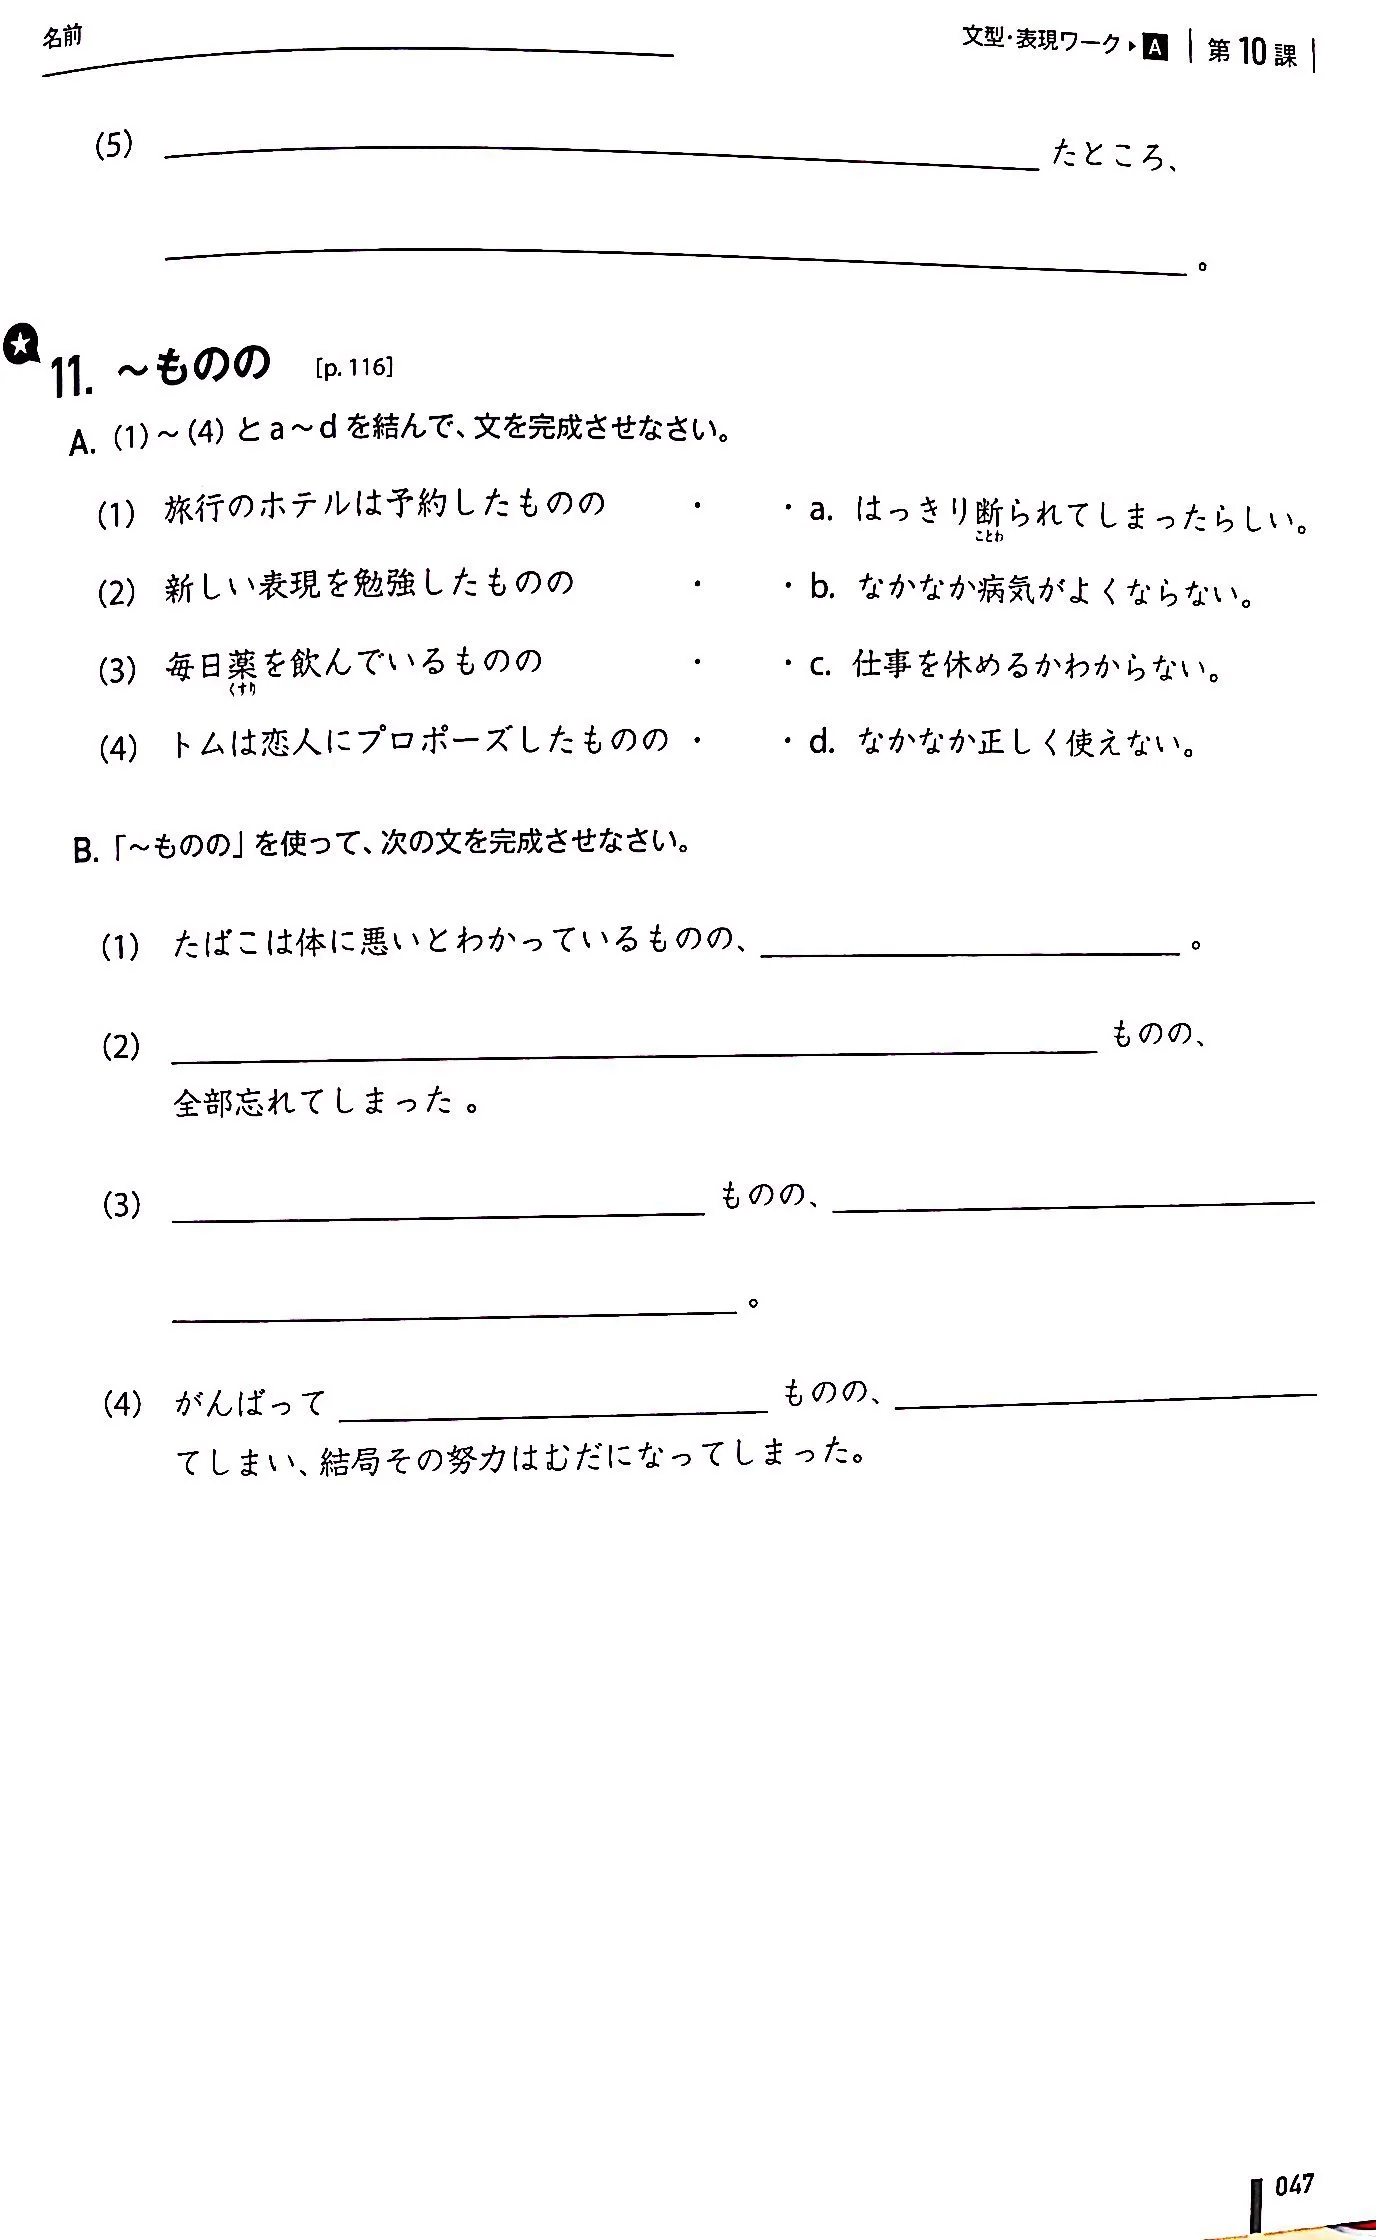 名前
文型・表現ワーク▶A 第10課
(5) たところ、
。
★
11. ～ものの [p. 116]
A. (1)～(4)とa～dを結んで、文を完成させなさい。
(1) 旅行のホテルは予約したものの ・ ・a. はっきり断られてしまったらしい。
ことわ
(2) 新しい表現を勉強したものの ・ ・b. なかなか病気がよくならない。
(3) 毎日薬を飲んでいるものの ・ ・c. 仕事を休めるかわからない。
くすり
(4) トムは恋人にプロポーズしたものの ・ ・d. なかなか正しく使えない。
B.「～ものの」を使って、次の文を完成させなさい。
(1) たばこは体に悪いとわかっているものの、 。
(2) ものの、
全部忘れてしまった。
(3) ものの、
。
(4) がんばって ものの、
てしまい、結局その努力はむだになってしまった。
047